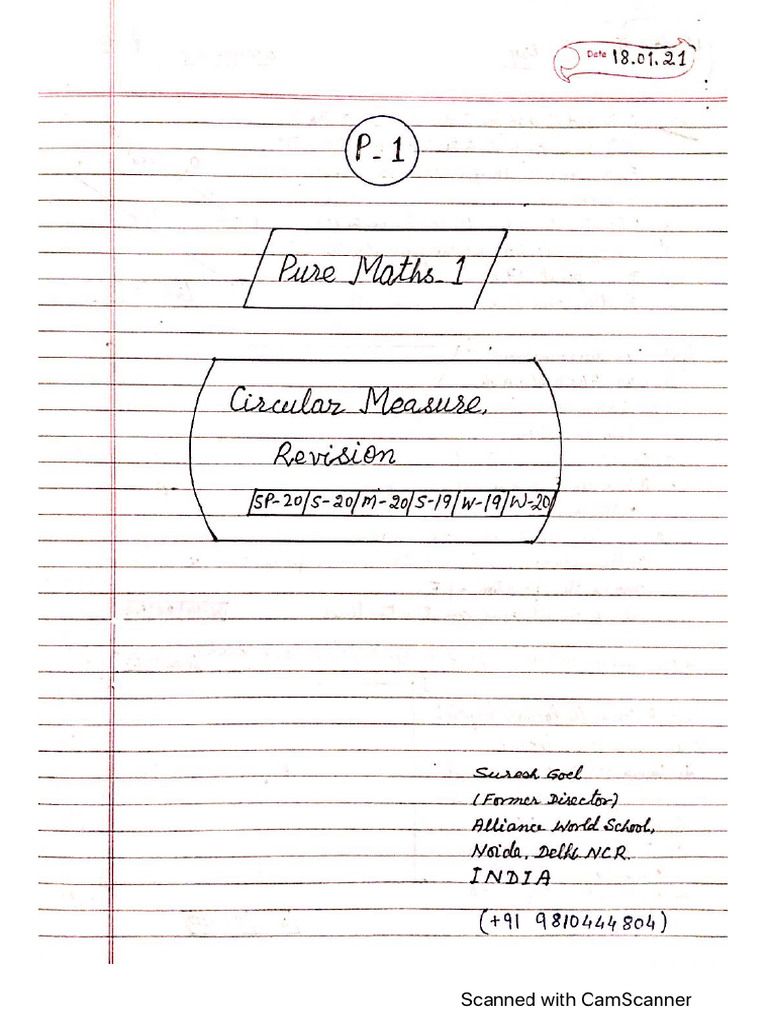 Date 18.01.21
P-1
Pure Maths-1
Circular Measure,
Revision
SP-20/S-20/M-20/S-19/W-19/W-20
Suresh Goel
(Former Director)
Alliance World School,
Noida, Delhi NCR.
INDIA
(+91 9810444804)
Scanned with CamScanner